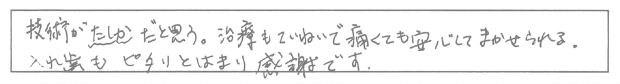 技術がたしかだと思う。治療もていねいで痛くても安心してまかせられる。
入れ歯もピタリとはまり感謝です.